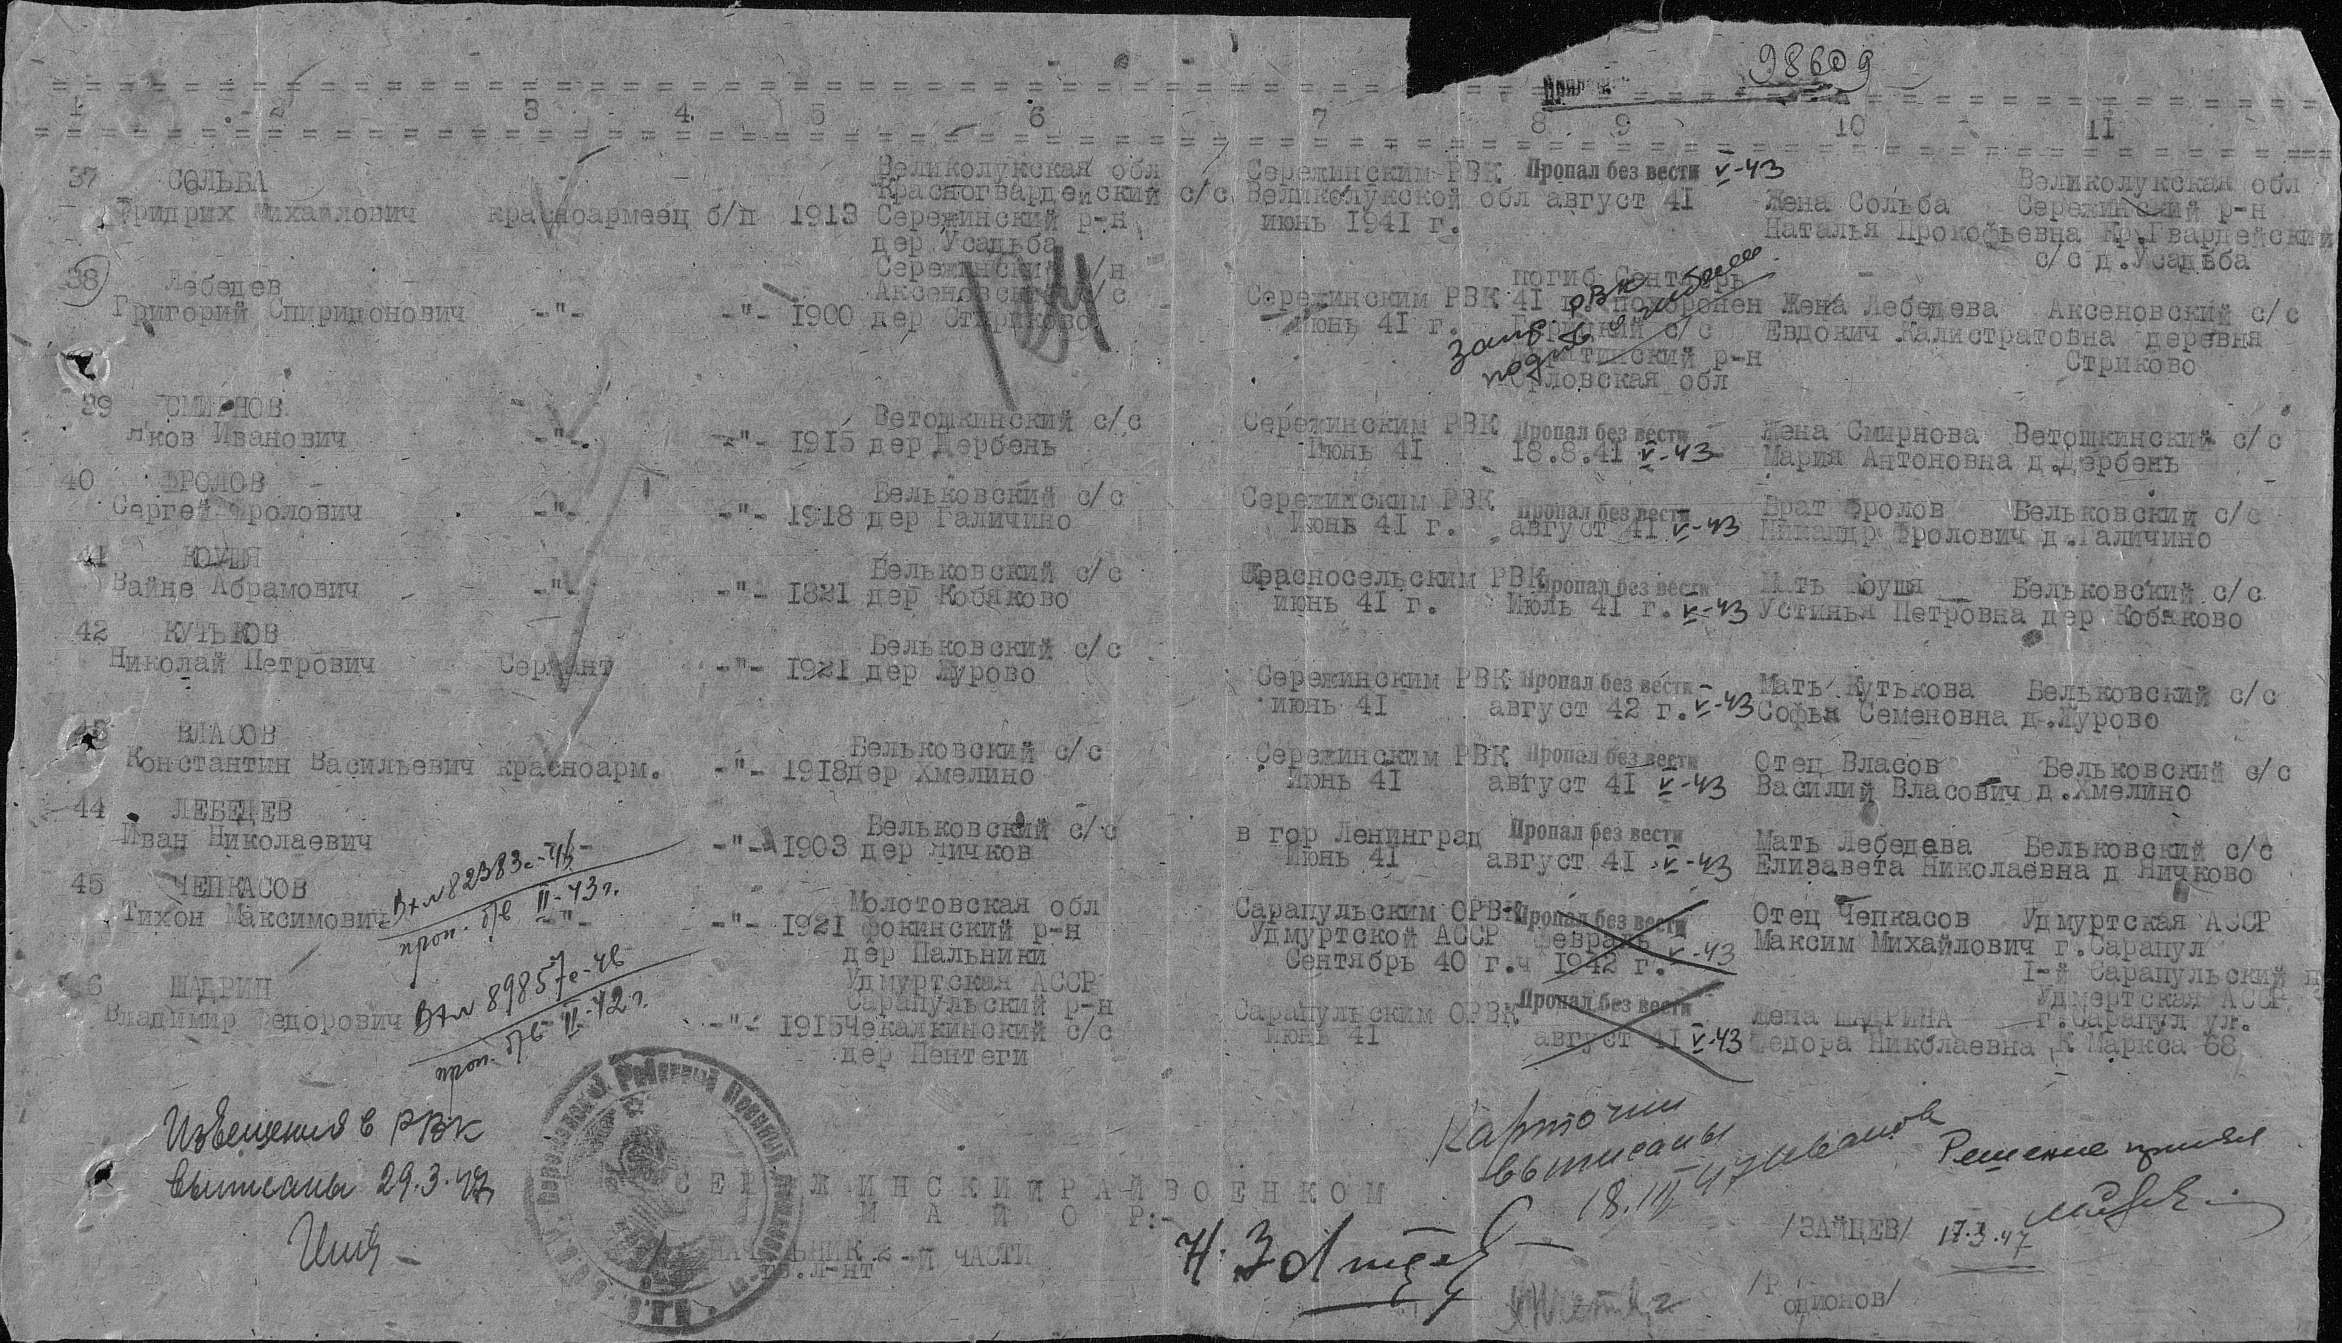 98609
1 2 3 4. 5 6 7 8 9 10 11
37 СОЛЬБА Великолукская обл Сережинским РВК Пропал без вести V-43 Великолукская обл
Фридрих Михайлович красноармеец б/п 1913 Красногвардейский с/с Великолукской обл август 41 Жена Сольба Сережинский р-н
Сережинский р-н июнь 1941 г. Наталья Прокофьевна Кр.Гвардейский
дер Усадьба с/с д.Усадьба
38 Лебедев Сережинский р/н погиб Сентябрь
Григорий Спиридонович -"- -"- 1900 Аксеновский с/с Сережинским РВК 41 г. похоронен Жена Лебедева Аксеновский с/с
дер Стриково июнь 41 г. с/с Евдокич Калистратовна деревня
р-н Стриково
Орловская обл
39 СМИРНОВ Ветошкинский с/с Сережинским РВК Пропал без вести Жена Смирнова Ветошкинский с/с
Яков Иванович -"-. -"- 1915 дер Дербень Июнь 41 18.8.41 V-43 Мария Антоновна д.Дербень
40 ФРОЛОВ Бельковский с/с Сережинским РВК Пропал без вести Брат Фролов Бельковский с/с
Сергей Фролович -"- -"- 1918 дер Галичино Июнь 41 г. август 41 V-43 Никандр Фролович д.Галичино
41 КОУШЯ Бельковский с/с Красносельским РВК Пропал без вести Мать Коушя Бельковский с/с
Вайне Абрамович -"- -"- 1821 дер Кобяково июнь 41 г. Июль 41 г. V-43 Устинья Петровна дер Кобяково
42 КУТЬКОВ Бельковский с/с
Николай Петрович Сержант -"- 1921 дер Журово Сережинским РВК Пропал без вести Мать Кутькова Бельковский с/с
июнь 41 август 42 г. V-43 Софья Семеновна д.Журово
43 ВЛАСОВ Бельковский с/с Сережинским РВК Пропал без вести Отец Власов Бельковский с/с
Константин Васильевич красноарм. -"- 1918 дер Хмелино Июнь 41 август 41 V-43 Василий Власович д.Хмелино
44 ЛЕБЕДЕВ Бельковский с/с в гор Ленинград Пропал без вести Мать Лебедева Бельковский с/с
Иван Николаевич -"- -"- 1903 дер Ничков Июнь 41 август 41 V-43 Елизавета Николаевна д Ничково
Вх №82383с-46
проп. б/в II-43г.
45 ЧЕПКАСОВ Молотовская обл Сарапульским ОРВК Пропал без вести Отец Чепкасов Удмуртская АССР
Тихон Максимович -"- -"- 1921 Фокинский р-н Удмуртской АССР февраль V-43 Максим Михайлович г.Сарапул
дер Пальники Сентябрь 40 г.ч 1942 г. 1-й Сарапульский п
Вх№ 89857с-46
проп. б/в II-42г.
46 ШАДРИН Удмуртская АССР Удмертская АССР
Владимир Федорович -"- 1915 Сарапульский р-н Сарапульским ОРВК Пропал без вести Жена ШАДРИНА г.Сарапул ул.
Чекалкинский с/с Июнь 41 август 41 V-43 Федора Николаевна К Маркса 68
дер Пентеги
Извещения в РВК
выписаны 29.3.47
Карточки
выписаны
18.III 47 Иванова
Решение принял
17.3.47
СЕРЕЖИНСКИЙ РАЙВОЕНКОМ
МАЙОР:- /ЗАЙЦЕВ/
НАЧАЛЬНИК 2-й ЧАСТИ
л-нт /Родионов/